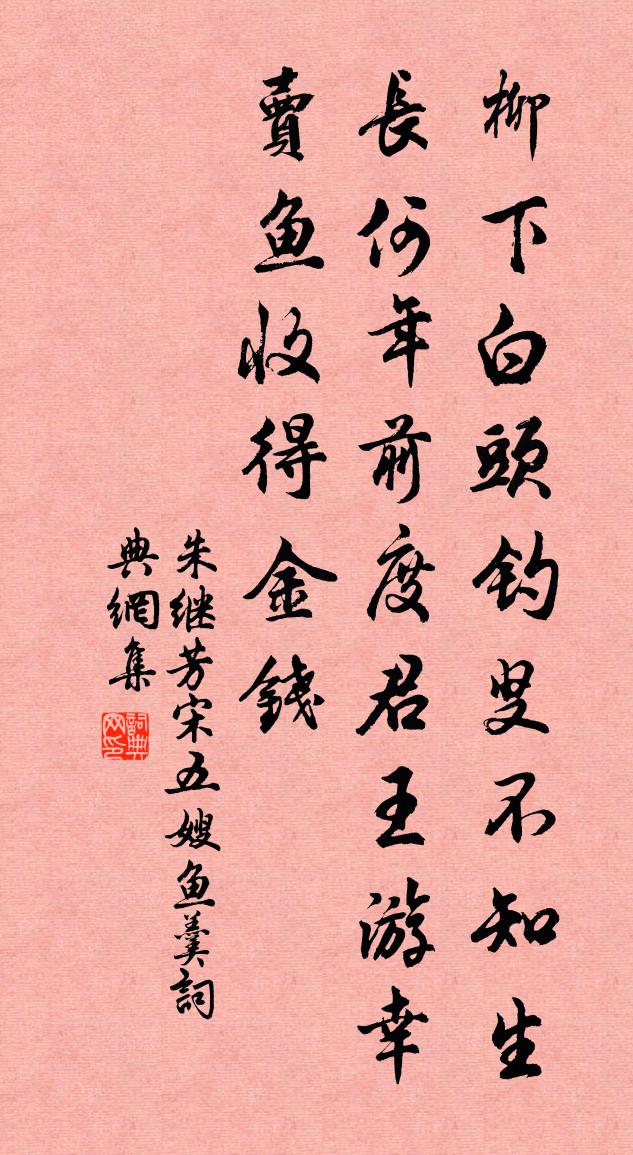 柳下白頭釣叟不知生
長何年前度君王游幸
賣鱼收得金錢
朱继芳宋五嫂鱼羹詞
典網集
詞典
网印